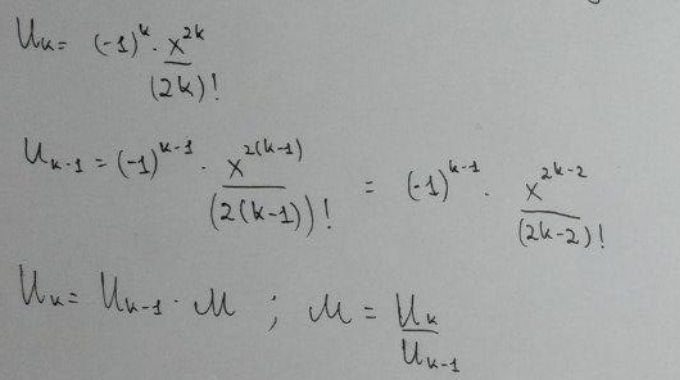 U_k = (-1)^k · x^{2k} / (2k)!
U_{k-1} = (-1)^{k-1} · x^{2(k-1)} / (2(k-1))! = (-1)^{k-1} · x^{2k-2} / (2k-2)!
U_k = U_{k-1} · M ; M = U_k / U_{k-1}